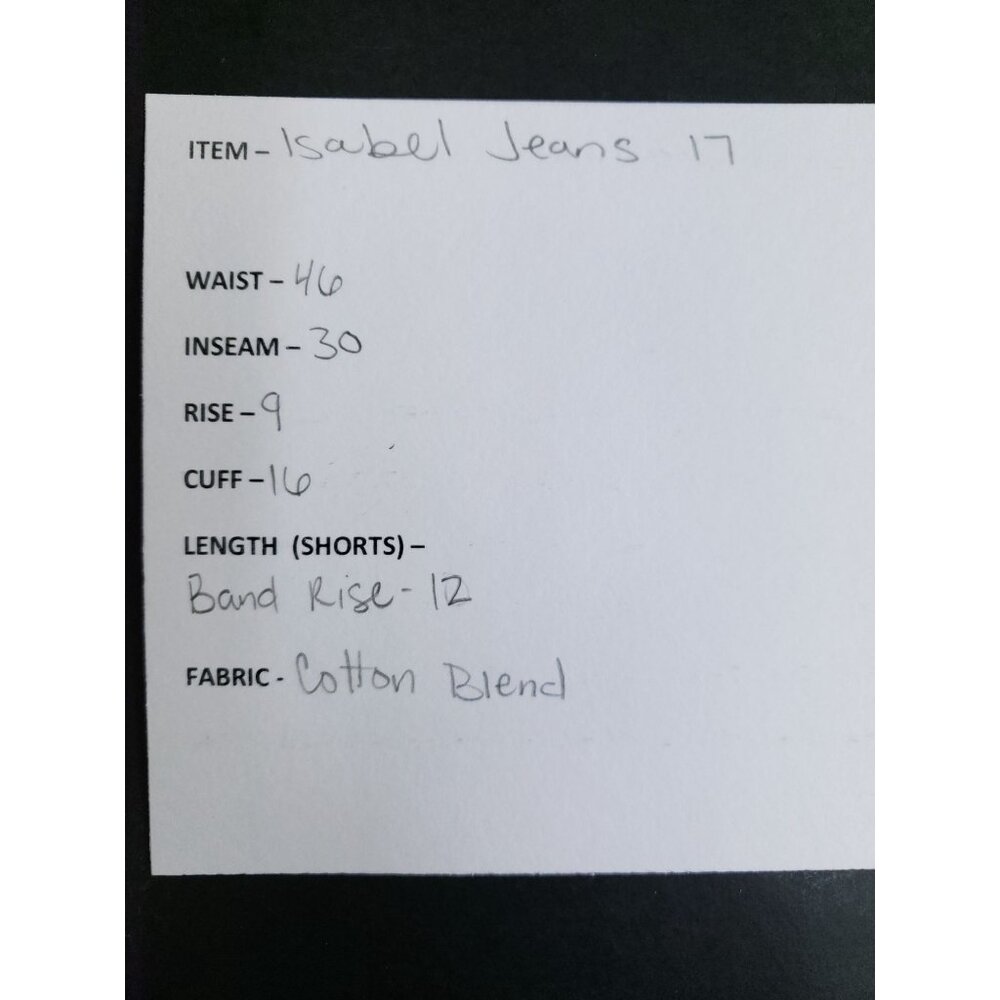 ITEM – Isabel Jeans 17
WAIST – 46
INSEAM – 30
RISE – 9
CUFF – 16
LENGTH (SHORTS) –
Band Rise - 12
FABRIC - Cotton Blend